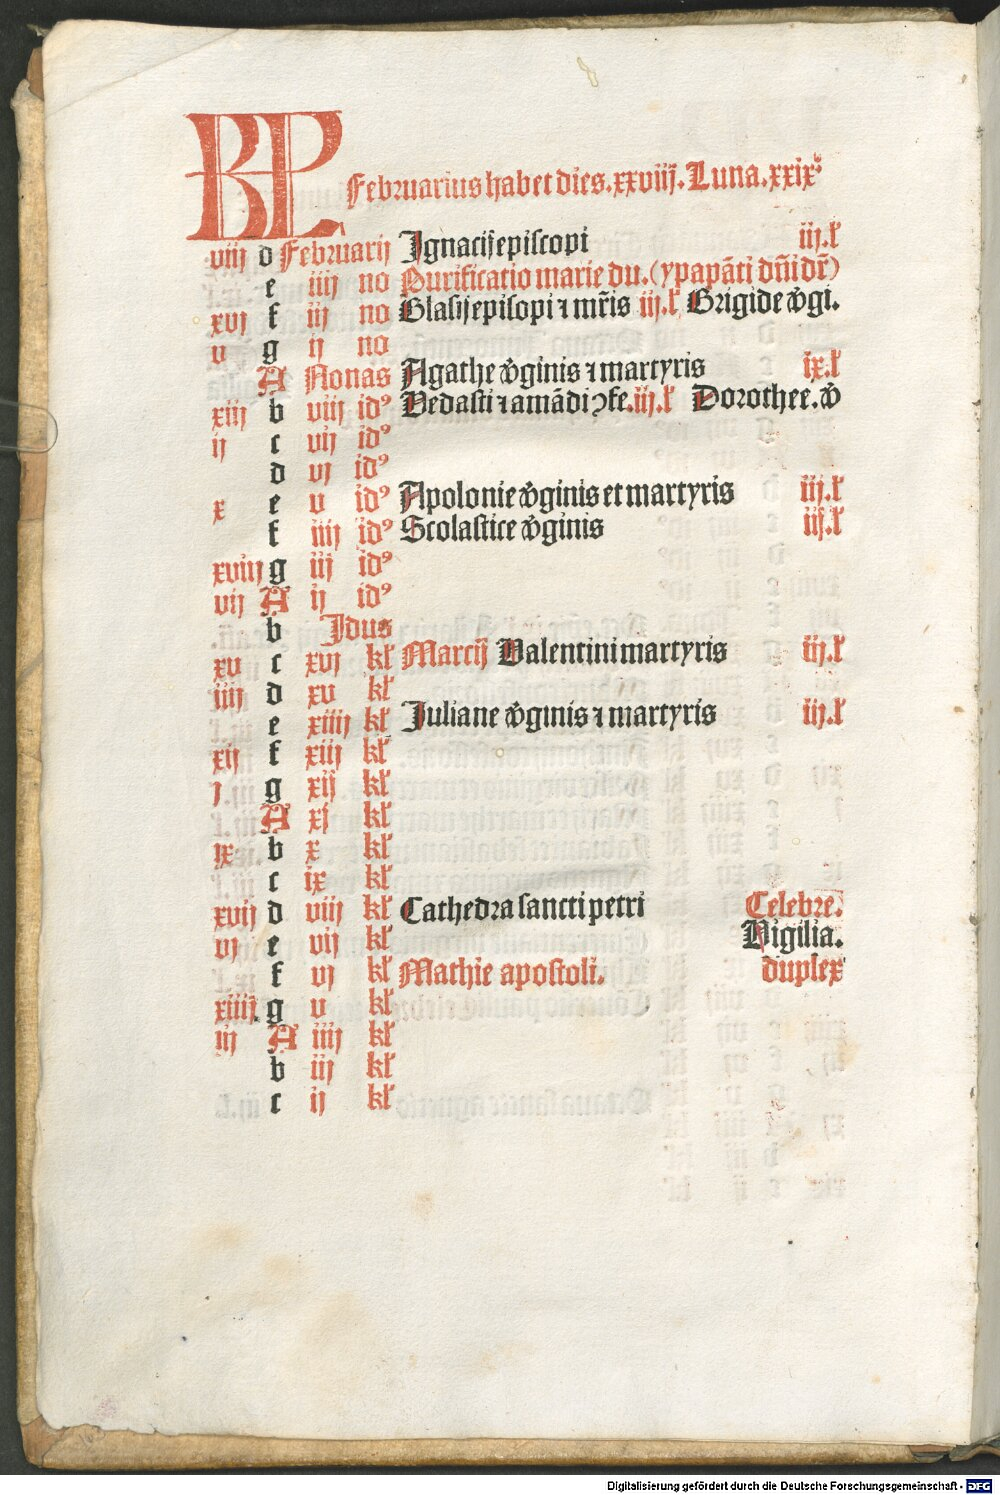 KL Februarius habet dies.xxviij. Luna.xxix⁹
viij d Februarij Ignacij episcopi iij.ł
e iiij no Purificatio marie du. (ypapāti dn̄i dr̄)
xvj f iij no Blasij episopi ⁊ mr̄is iij.ł Brigide v̓gi.
v g ij no
A Nonas Agathe v̓ginis ⁊ martyris ix.ł
xiij b viij id⁹ Vedasti ⁊ amādi ꝯfe.iij.ł Dorothee.v̓
ij c vij id⁹
d vj id⁹
x e v id⁹ Apolonie v̓ginis et martyris iij.ł
f iiij id⁹ Scolastice v̓ginis iij.ł
xviij g iij id⁹
vij A ij id⁹
b Idus
xv c xvj kł Marcij Valentini martyris iij.ł
iiij d xv kł
e xiiij kł Juliane v̓ginis ⁊ martyris iij.ł
xij f xiij kł
j g xij kł
A xj kł
ix b x kł
c ix kł
xvij d viij kł Cathedra sancti petri Celebre.
vj e vij kł Vigilia.
f vj kł Mathie apostoli. duplex
xiiij g v kł
iij A iiij kł
b iij kł
c ij kł
Digitalisierung gefördert durch die Deutsche Forschungsgemeinschaft - DFG